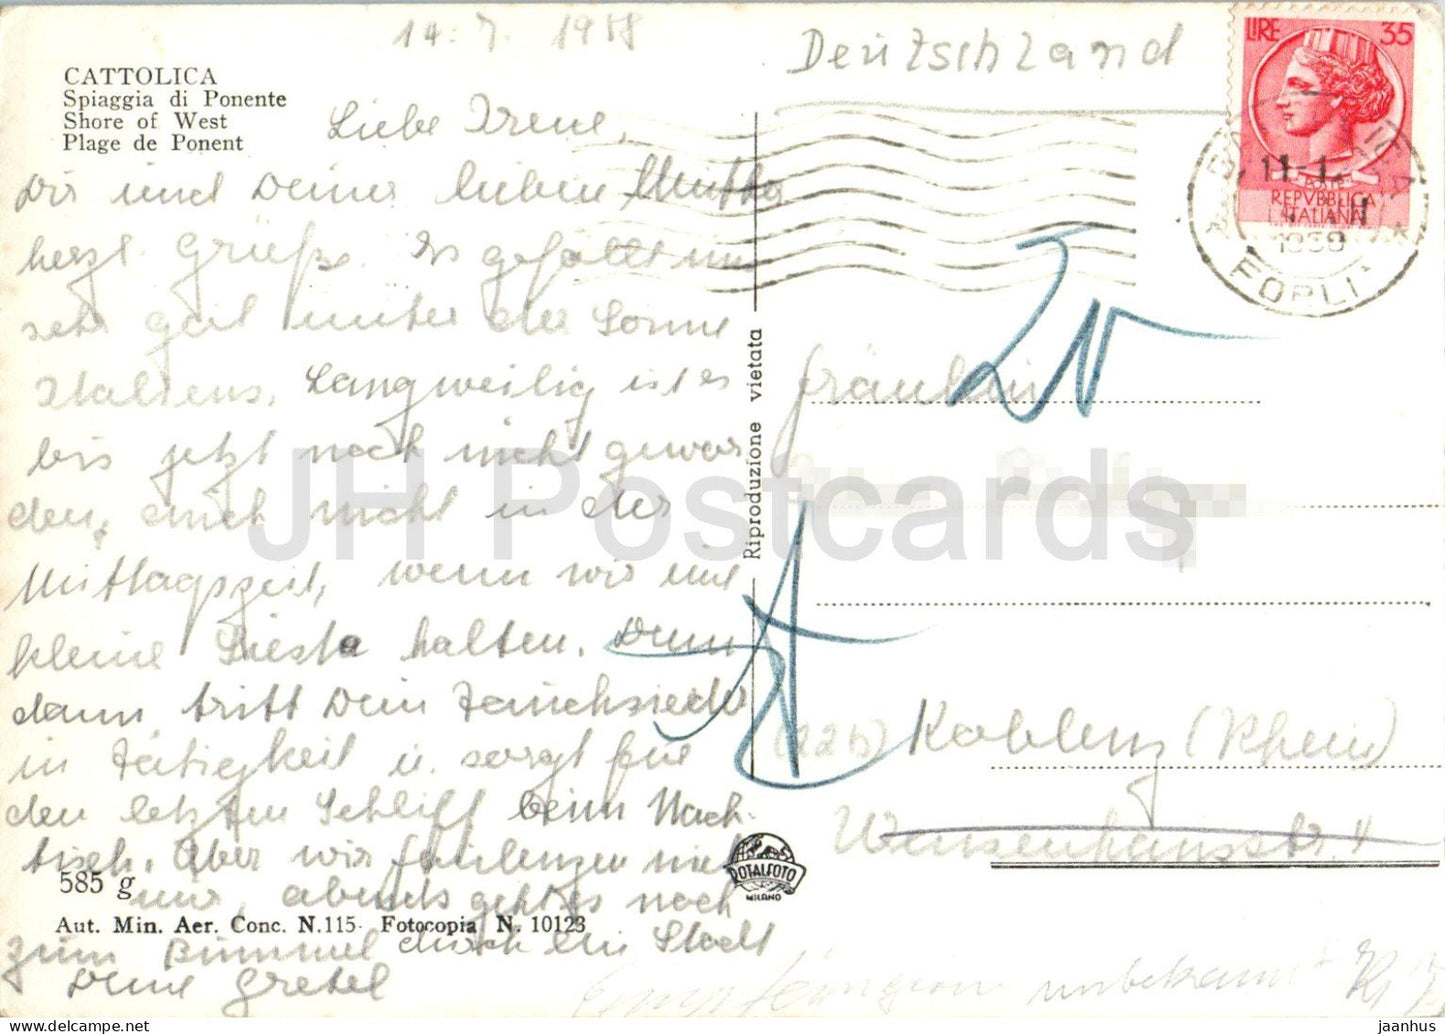 14. 7. 1958
Deutschland
LIRE 35
POSTE
REPVBBLICA
ITALIANA
1958
FORLI
CATTOLICA
Spiaggia di Ponente
Shore of West
Plage de Ponent
Liebe Irene,
Dir und Deiner lieben Mutter
herzl. Grüße. Es gefällt uns
sehr gut unter der Sonne
Italiens. Langweilig ist es
bis jetzt noch nicht gewor
den, auch nicht in der
Mittagszeit, wenn wir uns
kleine Siesta halten. Denn
dann tritt Dein Tauchsieder
in Tätigkeit u. sorgt für
den letzten Schliff beim Nach-
tisch. Aber wir faulenzen nicht
nur, abends geht es noch
zum Bummel durch die Stadt
Deine Gretel
585 g
Aut. Min. Aer. Conc. N.115- Fotocopia N. 10123
Riproduzione vietata
ROTALFOTO
MILANO
Fräulein
(22b) Koblenz (Rhein)
Waisenhausstr.
Empfängerin unbekannt
JH Postcards
jaanhus — https://www.delcampe.net